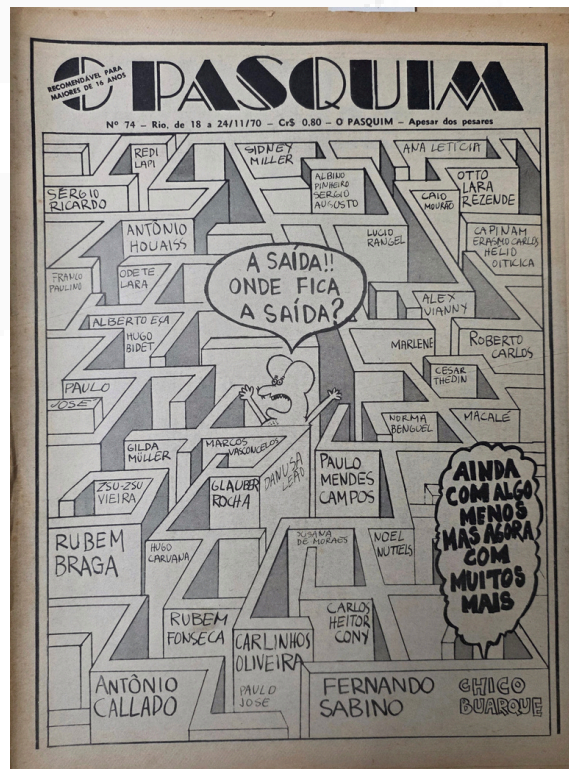 RECOMENDÁVEL PARA
MAIORES DE 16 ANOS
O PASQUIM
Nº 74 – Rio, de 18 a 24/11/70 – Cr$ 0.80 – O PASQUIM – Apesar dos pesares
REDI
LAPI
SIDNEY
MILLER
ANA LETÍCIA
SÉRGIO
RICARDO
ALBINO
PINHEIRO
SERGIO
AUGUSTO
CAIO
MOURÃO
OTTO
LARA
REZENDE
ANTÔNIO
HOUAISS
LUCIO
RANGEL
CAPINAM
ERASMO CARLOS
HELIO
OITICICA
FRANCO
PAULINO
ODETE
LARA
A SAÍDA!!
ONDE FICA
A SAÍDA?
ALEX
VIANNY
ALBERTO EÇA
HUGO
BIDET
MARLENE
ROBERTO
CARLOS
PAULO
JOSÉ
CESAR
THEDIN
NORMA
BENGUEL
MACALÉ
GILDA
MÜLLER
MARCOS
VASCONCELOS
ZSU-ZSU
VIEIRA
GLAUBER
ROCHA
DANUSA
LEÃO
PAULO
MENDES
CAMPOS
AINDA
COM ALGO
MENOS
MAS AGORA
COM
MUITOS
MAIS
RUBEM
BRAGA
HUGO
CARVANA
SUSANA
DE MORAES
NOEL
NUTTELS
RUBEM
FONSECA
CARLINHOS
OLIVEIRA
CARLOS
HEITOR
CONY
ANTÔNIO
CALLADO
PAULO
JOSE
FERNANDO
SABINO
CHICO
BUARQUE